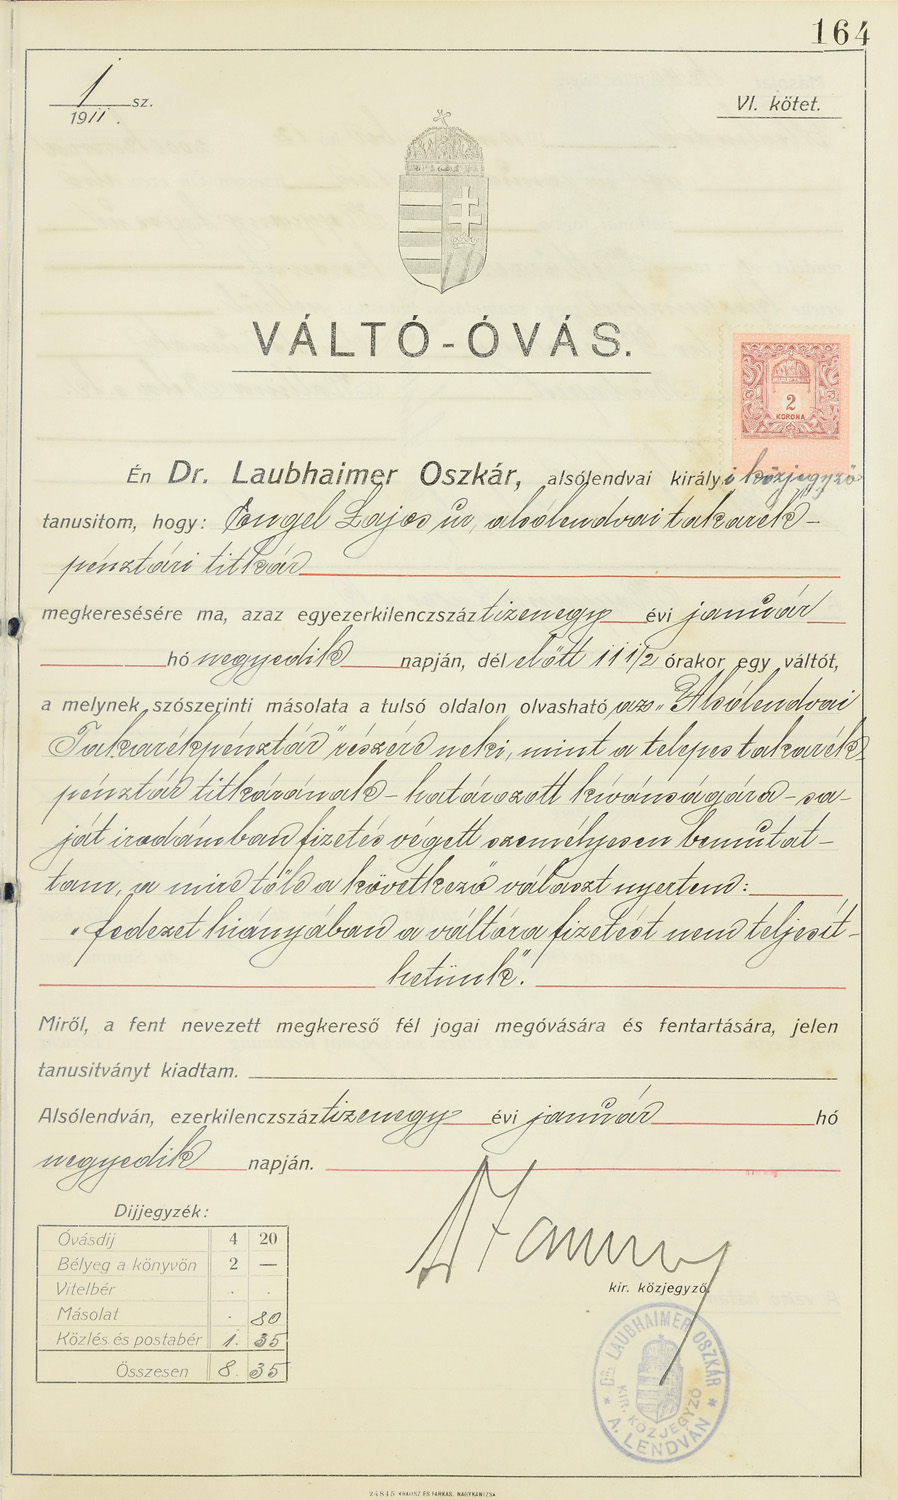 164
1 sz.
1911.
VI. kötet.
VÁLTÓ-ÓVÁS.
2
KORONA
Én Dr. Laubhaimer Oszkár, alsólendvai királyi közjegyző
tanusitom, hogy: Engel Lajos ur, alsólendvai takarék-
pénztári titkár
megkeresésére ma, azaz egyezerkilenczszáz tizenegy évi január
hó negyedik napján, dél előtt 11 1/2 órakor egy váltót,
a melynek szószerinti másolata a tulsó oldalon olvasható, az „Alsólendvai
Takarékpénztár" részére neki, mint a telepes takarék-
pénztár titkárának - határozott kívánságára - sa-
ját irodámban fizetés végett személyesen bemutat-
tam, a mire tőle a következő választ nyertem:
„fedezet hiányában a váltóra fizetést nem teljesít-
hetünk".
Miről, a fent nevezett megkereső fél jogai megóvására és fentartására, jelen
tanusitványt kiadtam.
Alsólendván, ezerkilenczszáz tizenegy évi január hó
negyedik napján.
Dijjegyzék:
Óvásdij 4 20
Bélyeg a könyvön 2 —
Vitelbér . .
Másolat . 80
Közlés és postabér 1. 35
Összesen 8. 35
kir. közjegyző.
DR. LAUBHAIMER OSZKÁR
KIR. KÖZJEGYZŐ
* A. LENDVÁN *
24845 KRAUSZ ÉS FARKAS, NAGYKANIZSA